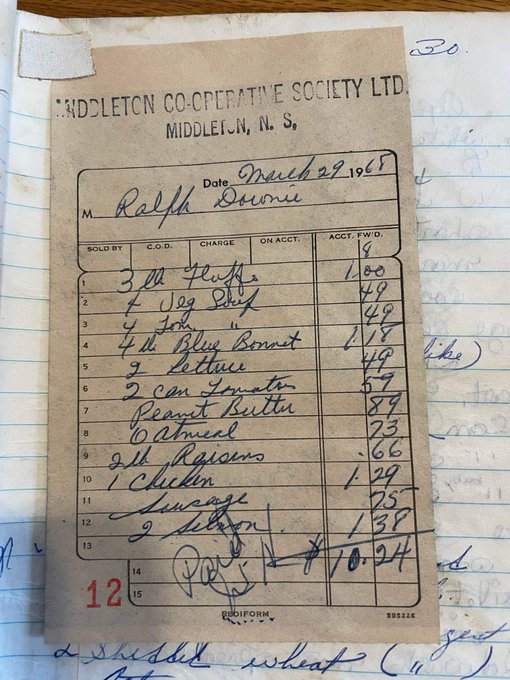 30.
MIDDLETON CO-OPERATIVE SOCIETY LTD.
MIDDLETON, N. S.
Date March 29 1968
M Ralph Downie
SOLD BY C.O.D. CHARGE ON ACCT. ACCT. FW'D.
1 3 lb Fluffo 1.00
2 4 Veg Soup 49
3 4 Tom " 49
4 4 lb Blue Bonnet 1.18
5 2 Lettuce 49
6 2 can Tomatoes 59
7 Peanut Butter 89
8 Oatmeal 73
9 2 lb Raisins .66
10 1 Chicken 1.29
11 Sausage 75
12 2 Salmon 1 38
13 $ 10.24
14 Paid
15
12
REDIFORM 5B522E
like)
2 Shredded wheat ( " )